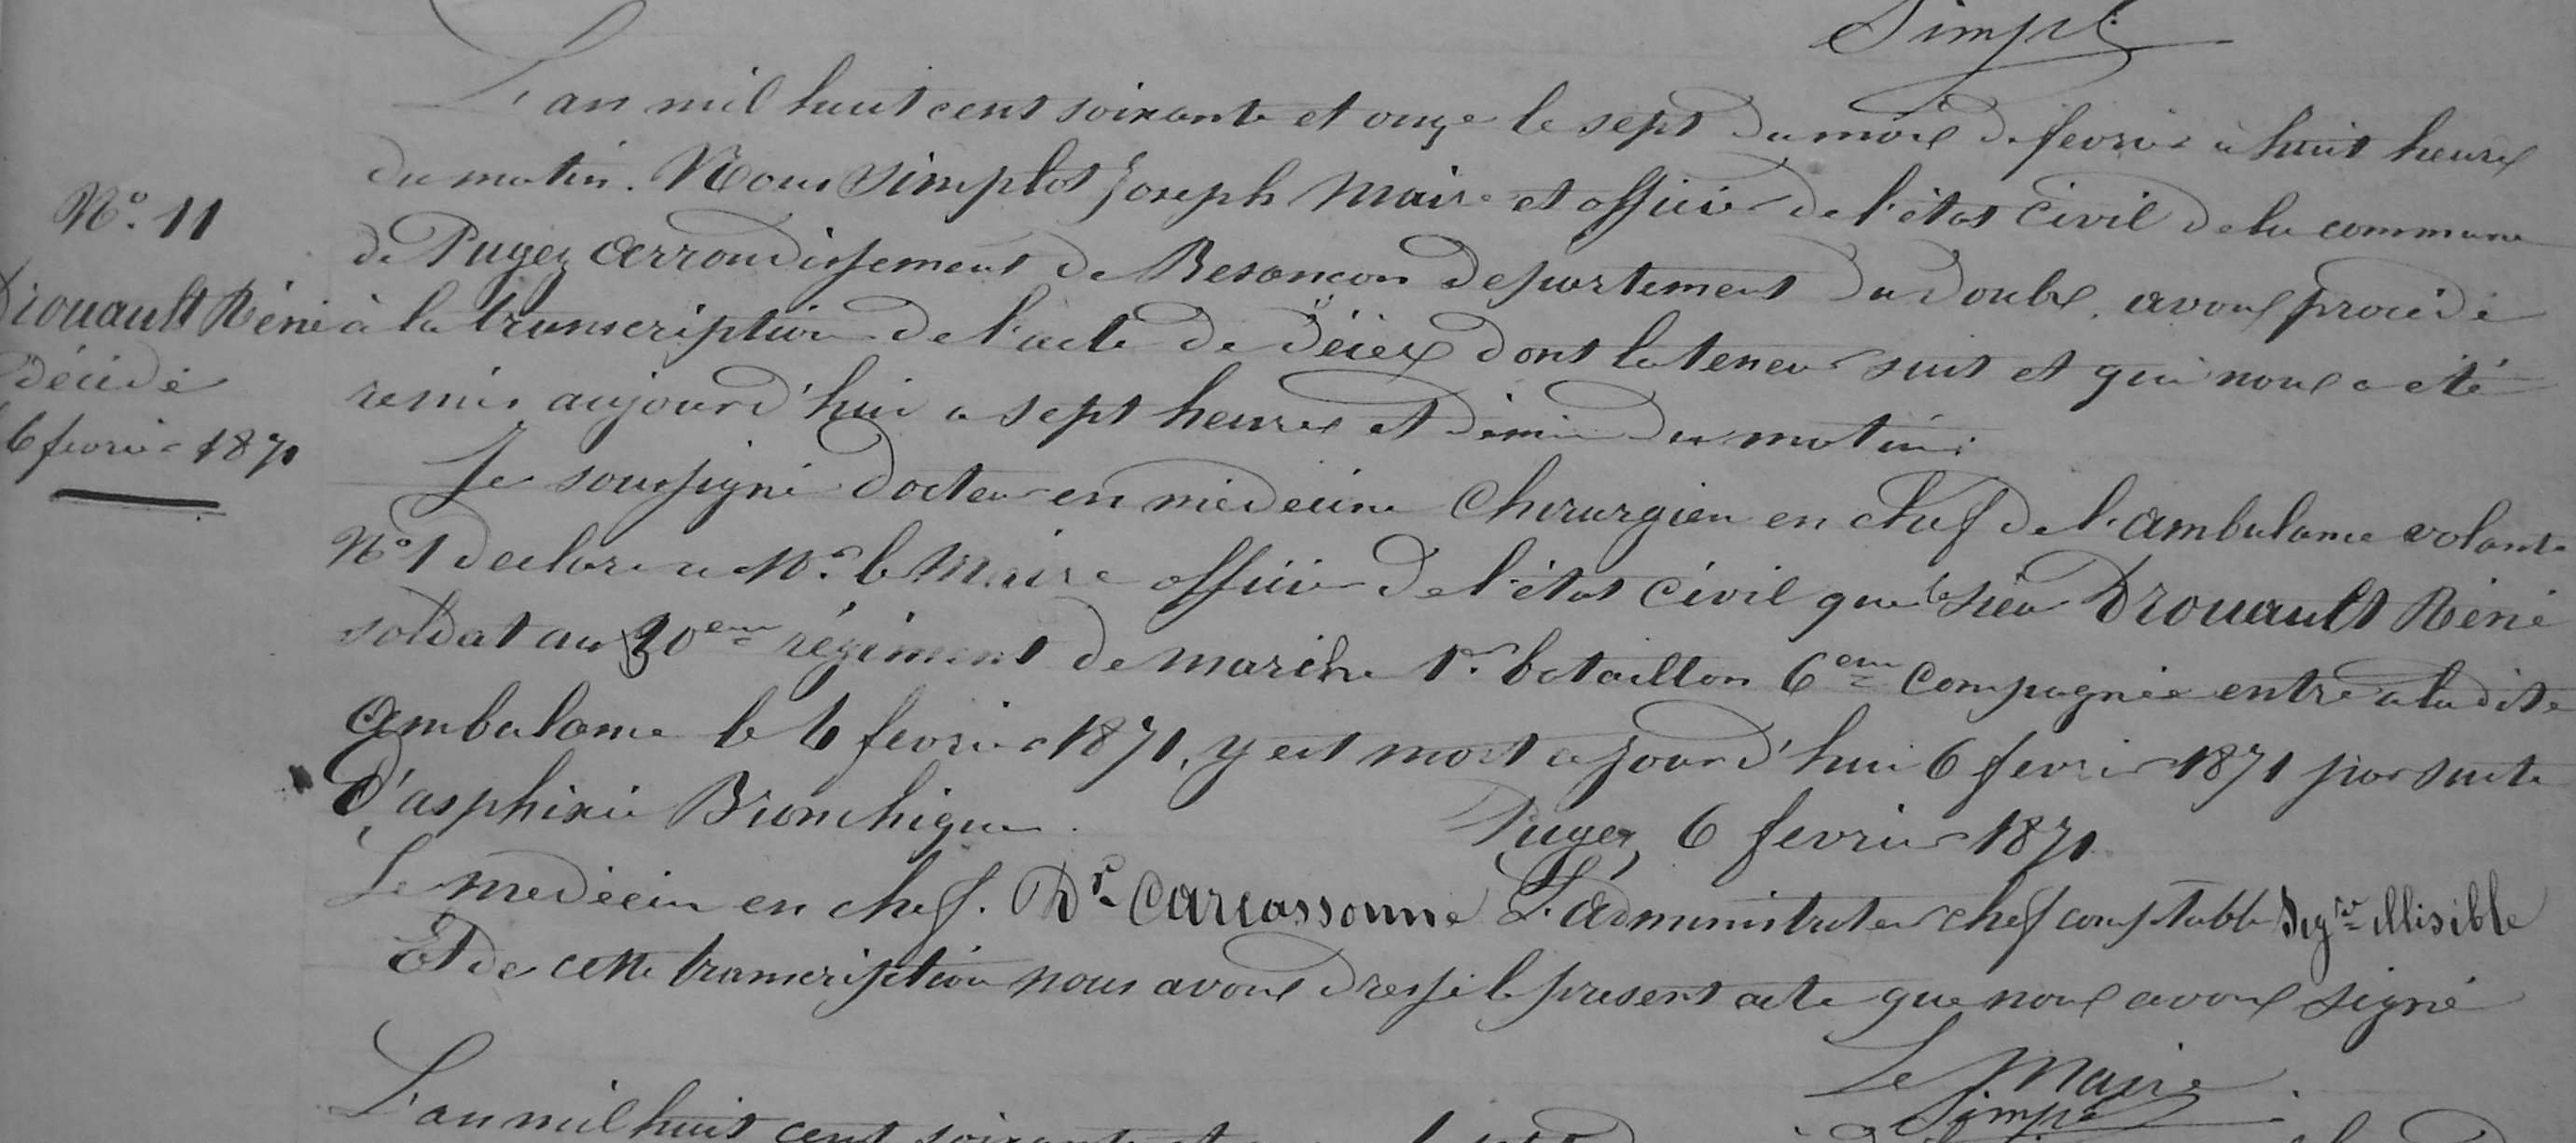 Simpl
L'an mil huit cent soixante et onze le sept du mois de fevrier à huit heures
du matin. Nous Simplot Joseph Maire et officier de l'état civil de la commune
de Pugey arrondissement de Besancon departement du Doubs, avons procédé
à la transcription de l'acte de décès dont la teneur suit et qui nous a été
remis aujourd'hui a sept heures et demie du matin:
N°. 11
Drouault Réné
décédé
6 fevrier 1871
Je soussigné docteur en médecine Chirurgien en chef de l'ambulance volante
N° 1 declare a Mr. le Maire officier de l'état civil que le sieur Drouault Réné
soldat au 30eme régiment de marche 1er bataillon 6eme Compagnie entré a la dite
ambulance le 6 fevrier 1871, y est mort cejourd'hui 6 fevrier 1871 par suite
d'asphixie Bronchique.
Pugey 6 fevrier 1871
Le medecin en chef. Dr. Carcassonne L'administrateur chef comptable Sigre illisible
Et de cette transcription nous avons dressé le present acte que nous avons signé
Le Maire
Simpl
L'an mil huit cent soixante et